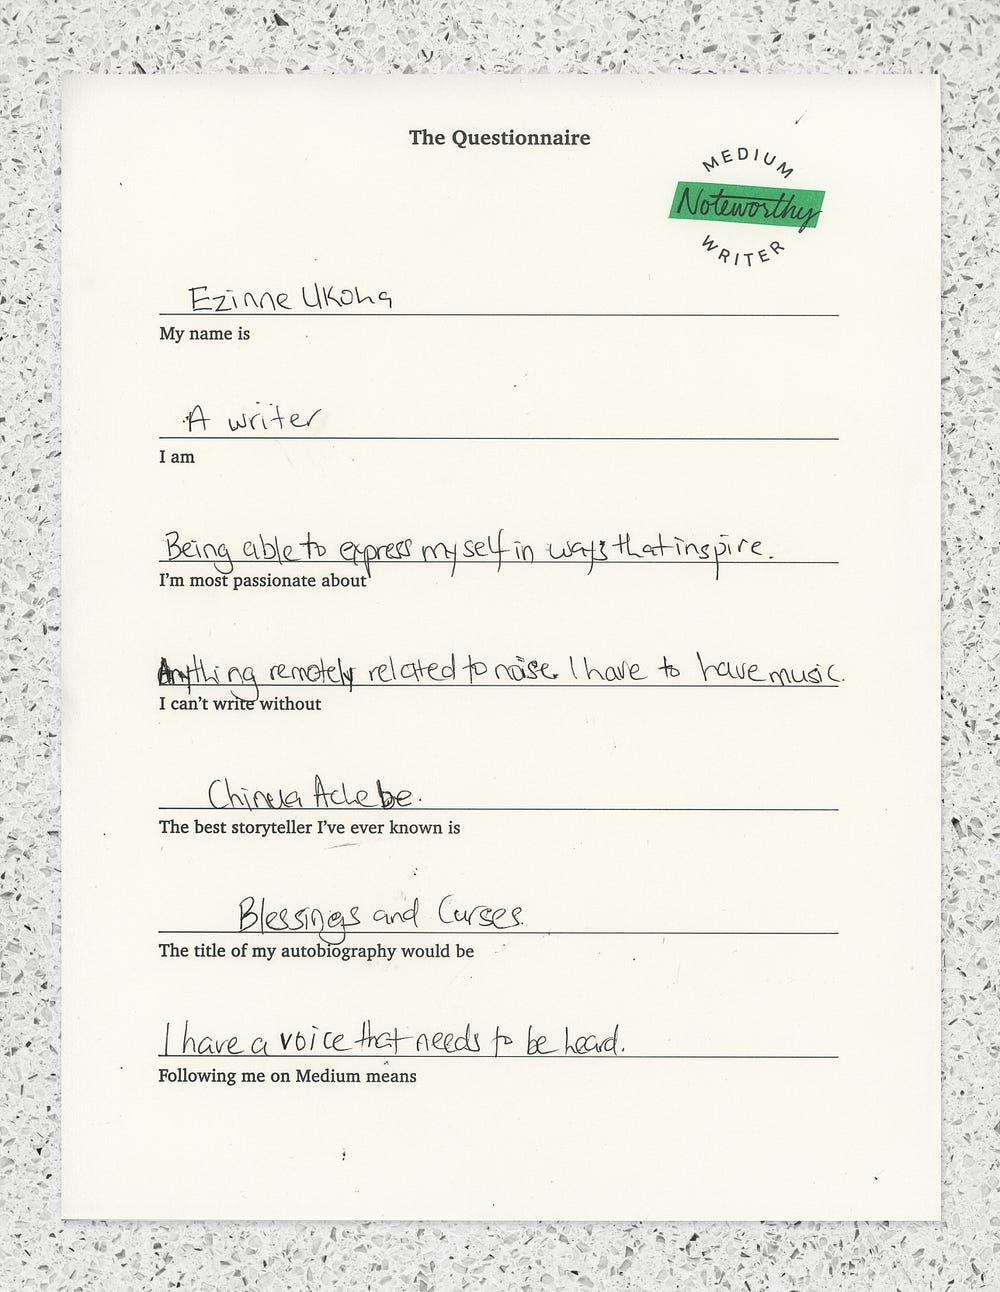 The Questionnaire
MEDIUM
Noteworthy
WRITER
Ezinne Ukoha
My name is
A writer
I am
Being able to express myself in ways that inspire.
I'm most passionate about
Anything remotely related to noise. I have to have music.
I can't write without
Chinua Achebe.
The best storyteller I've ever known is
Blessings and Curses.
The title of my autobiography would be
I have a voice that needs to be heard.
Following me on Medium means